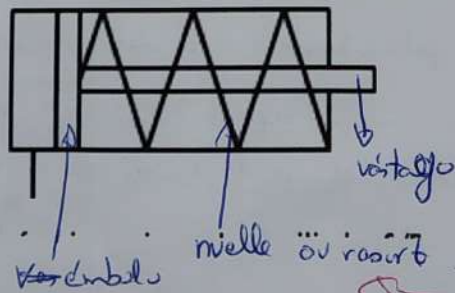 vástago
muelle ou resorte
émbolo